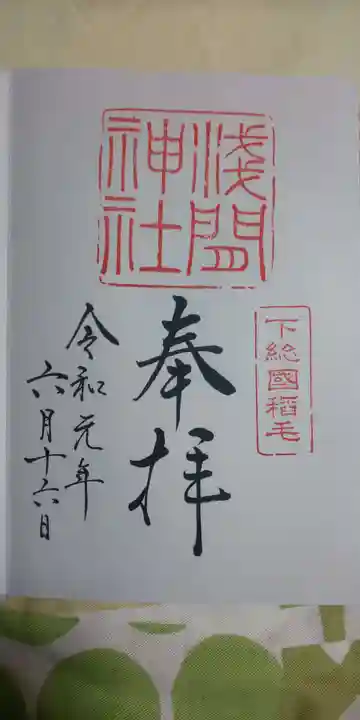 下総國稲毛
浅間
神社
奉拝
令和元年
六月十六日